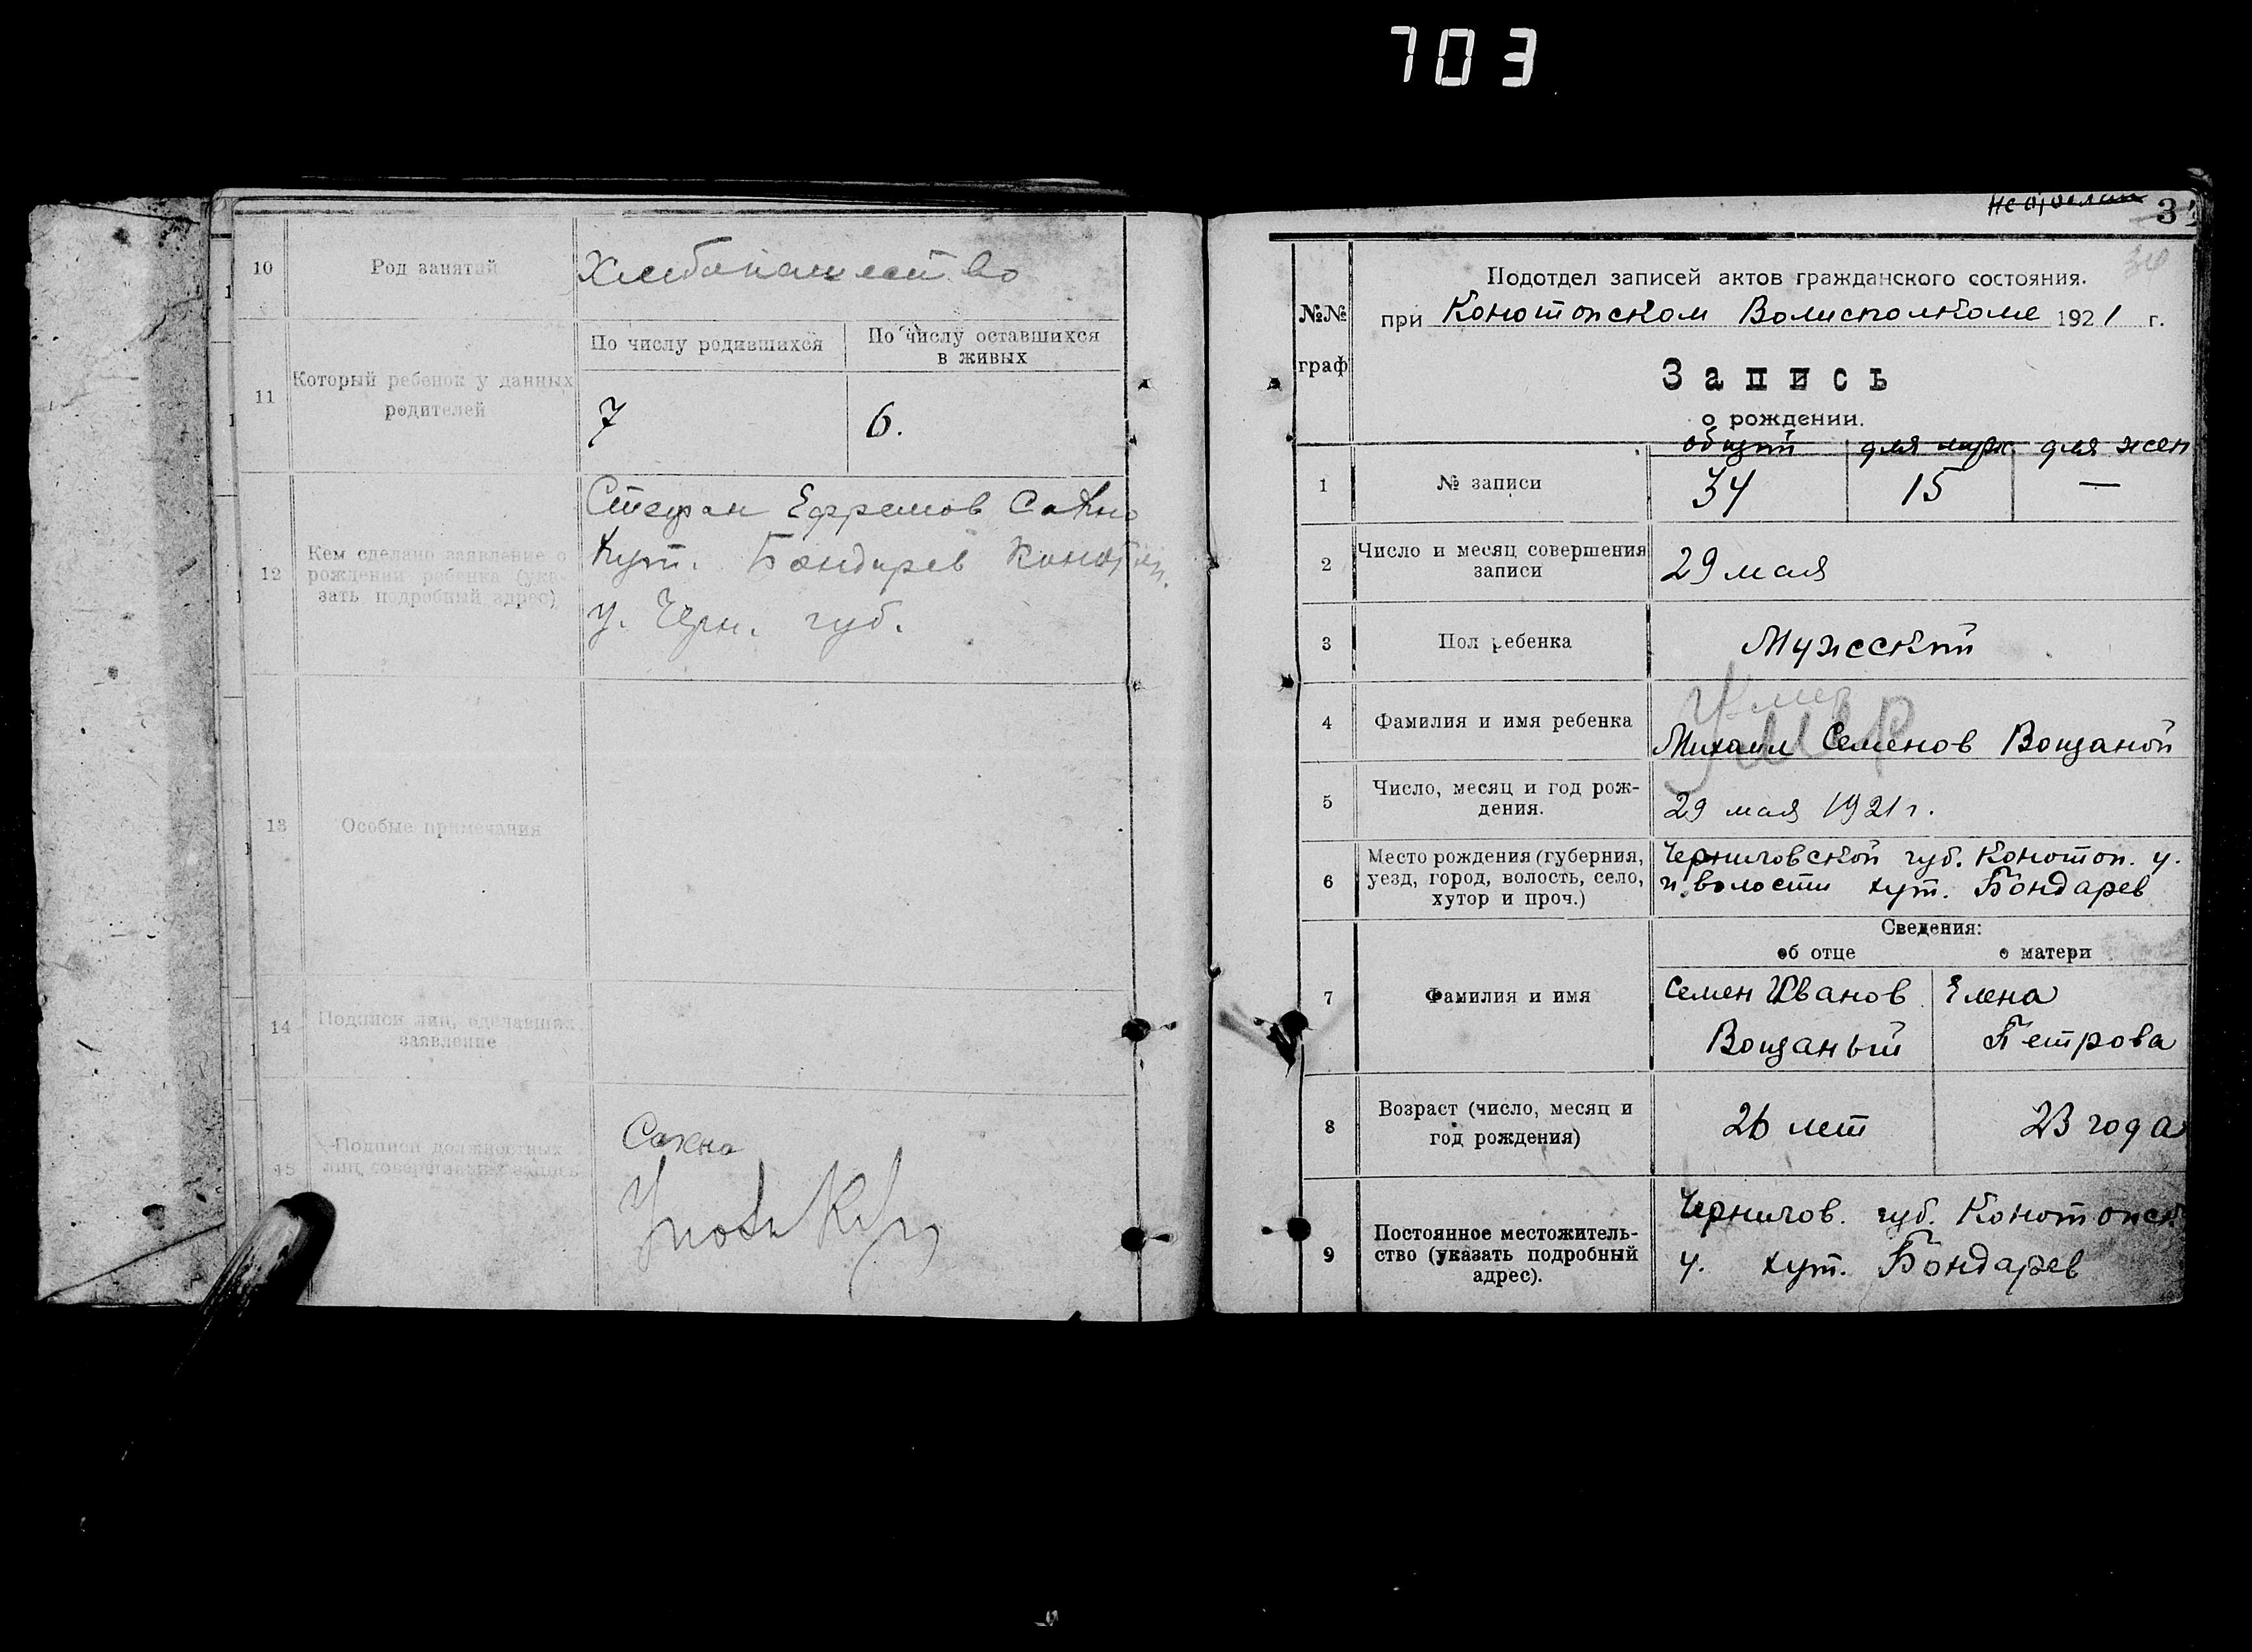 703
10
Род занятий
Хлебопашество
11
Который ребенок у данных
родителей
По числу родившихся
По числу оставшихся
в живых
7
6.
12
Кем сделано заявление о
рождении ребенка (ука-
зать подробный адрес)
Стефан Ефремов Сахно
хут. Бондарев Коното
у. Черн. губ.
13
Особые примечания
14
Подписи лиц, сделавших
заявление
15
Подписи должностных
лиц, совершавших запись
Сахно
3
№№
граф
Подотдел записей актов гражданского состояния.
при Конотопском Волисполкоме 1921 г.
Запись
о рождении.
общий для муж. для жен
1
№ записи
34 15 —
2
Число и месяц совершения
записи
29 мая
3
Пол ребенка
Мужеский
4
Фамилия и имя ребенка
Умер
Умер
Михаил Семенов Вощаной
5
Число, месяц и год рож-
дения.
29 мая 1921 г.
6
Место рождения (губерния,
уезд, город, волость, село,
хутор и проч.)
Черниговской губ. Конотоп. у.
и волости хут. Бондарев
Сведения:
об отце
о матери
7
Фамилия и имя
Семен Иванов
Вощаный
Елена
Петрова
8
Возраст (число, месяц и
год рождения)
26 лет
23 года
9
Постоянное местожитель-
ство (указать подробный
адрес).
Чернигов. губ. Конотопск
у. хут. Бондарев